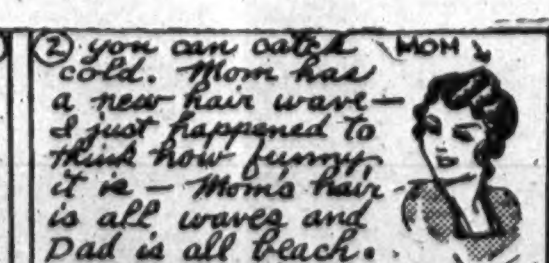 ② you can catch
cold. Mom has
a new hair wave—
I just happened to
think how funny
it is — Mom's hair
is all waves and
Dad is all beach.
MOM